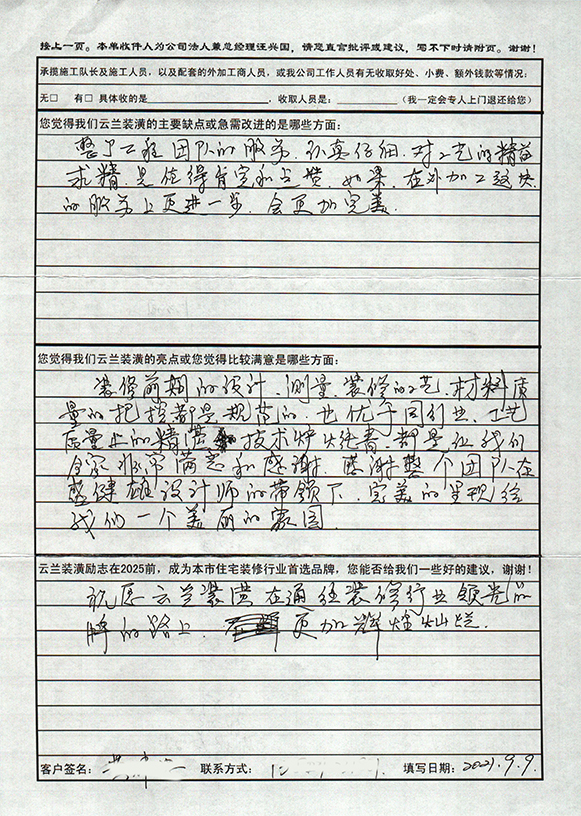 接上一页。本单收件人为公司法人兼总经理汪兴国，请您直言批评或建议，写不下时请附页。谢谢！
承揽施工队长及施工人员，以及配套的外加工商人员，或我公司工作人员有无收取好处、小费、额外钱款等情况：
无□ 有□ 具体收的是 ，收取人员是： （我一定会专人上门退还给您）
您觉得我们云兰装潢的主要缺点或急需改进的是哪些方面：
整个工程团队的服务，认真仔细，对工艺的精益
求精，是值得肯定和点赞，如果，在外加工这块
的服务上更进一步，会更加完美.
您觉得我们云兰装潢的亮点或您觉得比较满意是哪些方面：
装修前期的设计，测量，装修的工艺，材料质
量的把控都是规范的，也优于同行业，工艺
质量上的精湛 技术炉火纯青，都是让我们
全家非常满意和感谢，感谢整个团队在
盛健雄设计师的带领下，完美的呈现给
我们一个美丽的家园
云兰装潢励志在2025前，成为本市住宅装修行业首选品牌，您能否给我们一些好的建议，谢谢！
祝愿云兰装潢在通往装修行业领先品
牌的路上， 更加辉煌灿烂.
客户签名： 联系方式： 填写日期：2021.9.9.